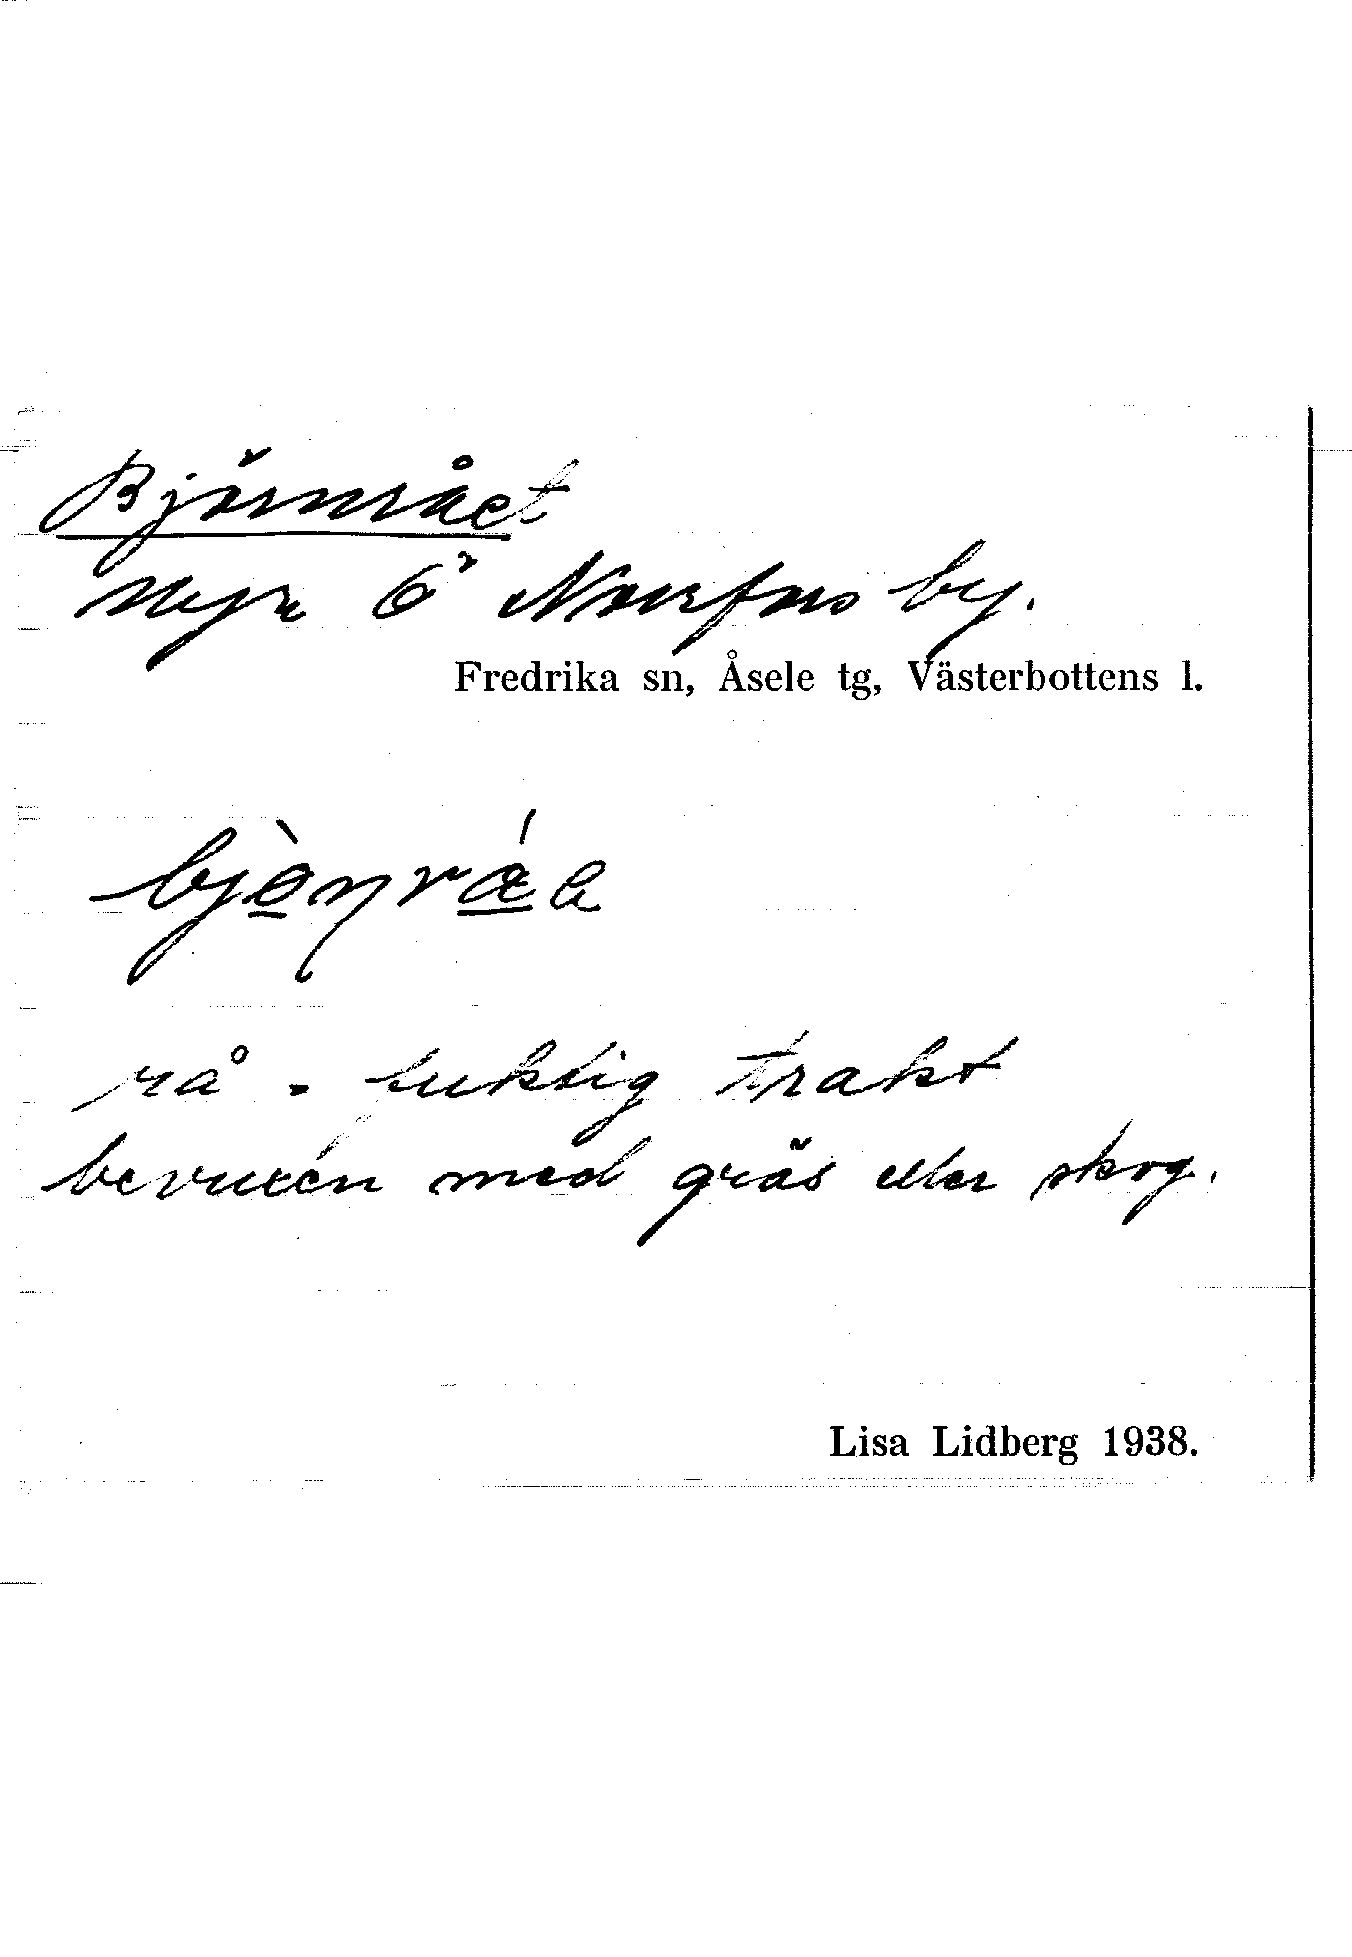 Björnrået
Myr ö Norrfors by.
Fredrika sn, Åsele tg, Västerbottens l.
rå - fuktig trakt
bevuxen med gräs eller skog.
Lisa Lidberg 1938.